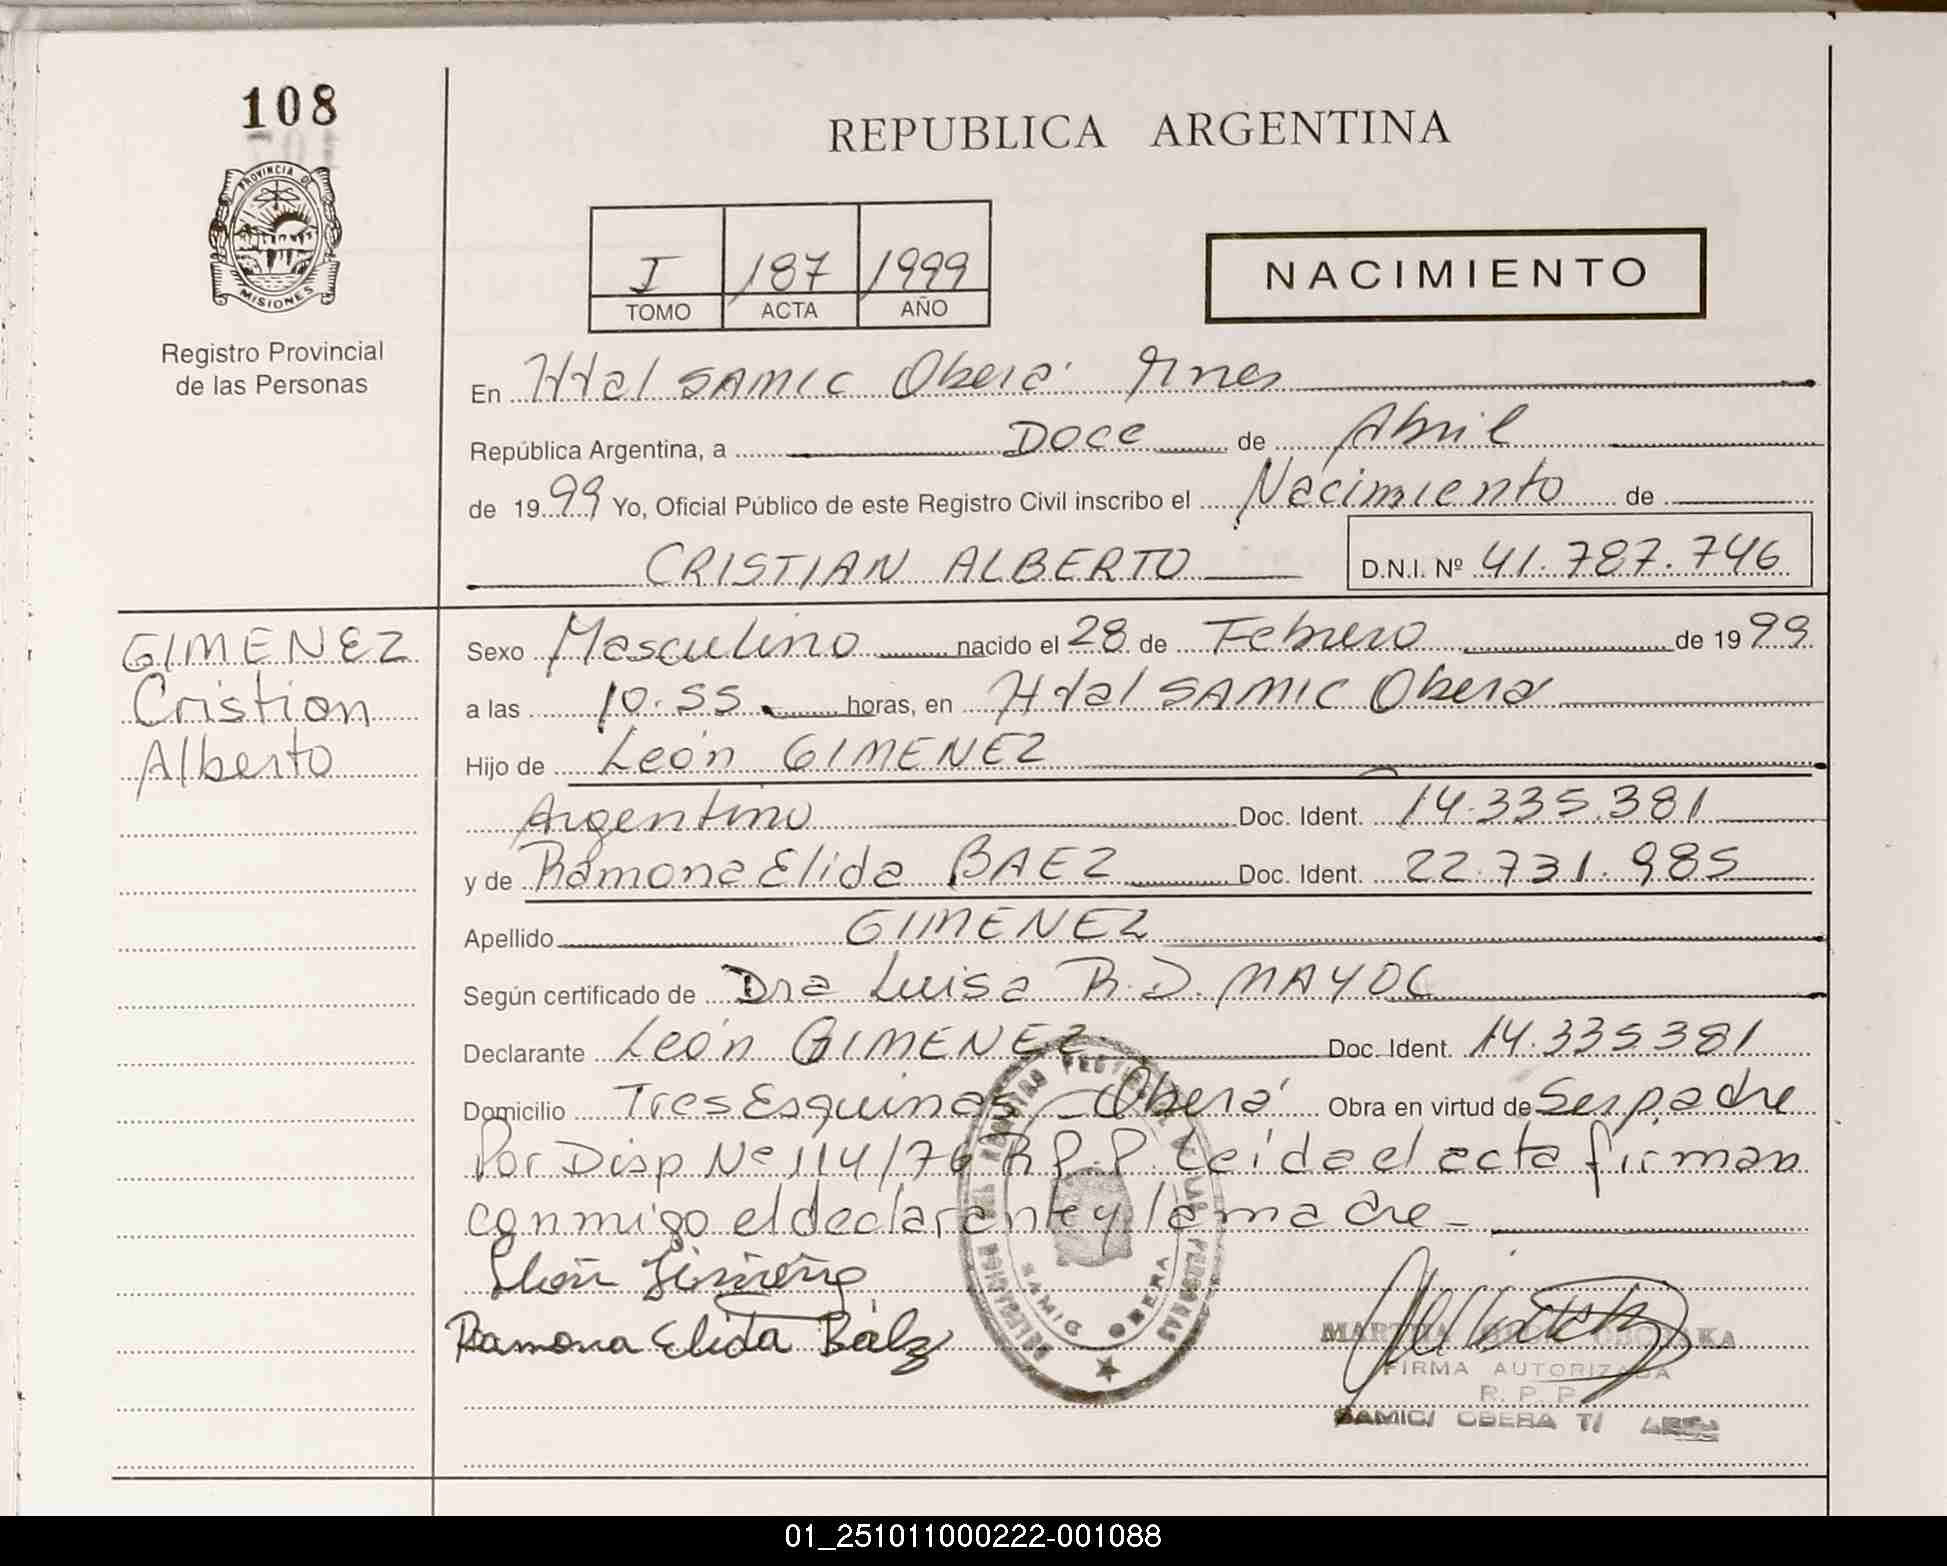 108
PROVINCIA DE
MISIONES
Registro Provincial
de las Personas
REPUBLICA ARGENTINA
I 187 1999
TOMO ACTA AÑO
NACIMIENTO
En Htal SAMIC Oberá Mnes
República Argentina, a Doce de Abril
de 1999 Yo, Oficial Público de este Registro Civil inscribo el Nacimiento de
CRISTIAN ALBERTO D.N.I. Nº 41.787.746
GIMENEZ
Cristian
Alberto
Sexo Masculino nacido el 28 de Febrero de 1999
a las 10.55 horas, en Htal SAMIC Oberá
Hijo de León GIMENEZ
Argentino Doc. Ident. 14.335.381
y de Ramona Elida BAEZ Doc. Ident. 22.731.985
Apellido GIMENEZ
Según certificado de Dra Luisa R. D. MAYOC
Declarante León GIMENEZ Doc. Ident. 14.335381
Domicilio Tres Esquinas - Oberá Obra en virtud de Ser padre
Por Disp Nº 114/76 R.P.P. Leída el acta firman
conmigo el declarante y la madre -
Ramona Elida Báez
SAMIC OBERA
MARTHA
FIRMA AUTORIZADA
R. P. P.
SAMIC/ OBERA T/
01_251011000222-001088